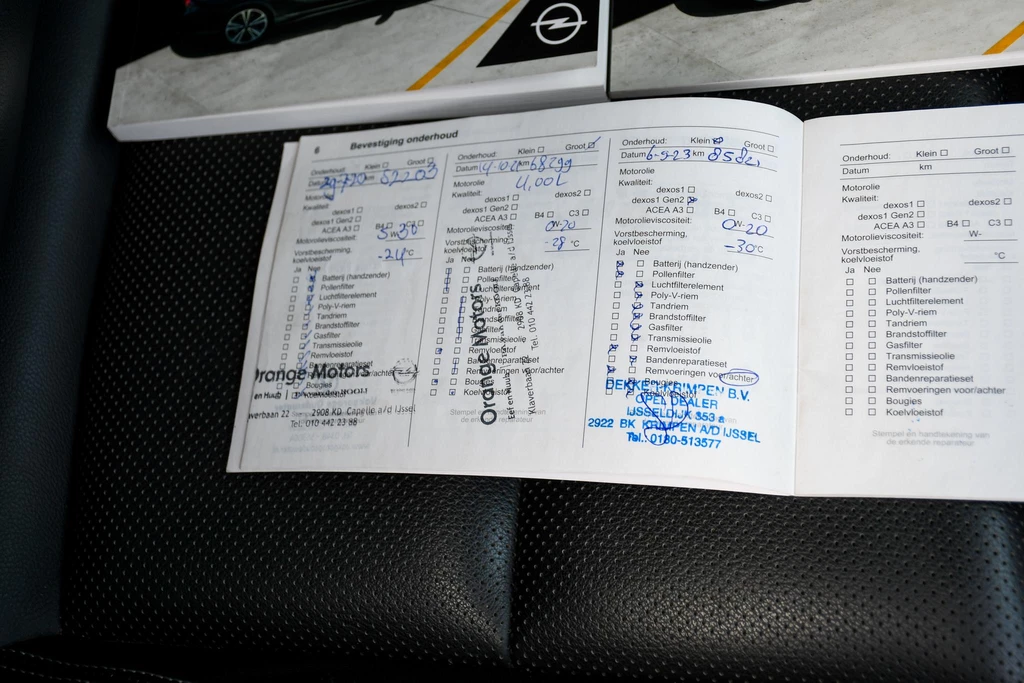 6 Bevestiging onderhoud
Onderhoud: Klein Groot
Datum km 52203
Motorolie
Kwaliteit:
dexos1 dexos2
dexos1 Gen2
ACEA A3 B4 C3
Motorolieviscositeit: 5W-30
Vorstbescherming,
koelvloeistof -24°C
Ja Nee
Batterij (handzender)
Pollenfilter
Luchtfilterelement
Poly-V-riem
Tandriem
Brandstoffilter
Gasfilter
Transmissieolie
Remvloeistof
Bandenreparatieset
Bougies
Koelvloeistof
Orange Motors
2908 KD Capelle a/d IJssel
Tel. 010 442 23 88
Onderhoud: Klein Groot
Datum km 68299
Motorolie 4,00L
Kwaliteit:
dexos1 dexos2
dexos1 Gen2
ACEA A3 B4 C3
Motorolieviscositeit: 0W-20
Vorstbescherming,
koelvloeistof -28°C
Ja Nee
Batterij (handzender)
Pollenfilter
Luchtfilterelement
Poly-V-riem
Tandriem
Brandstoffilter
Gasfilter
Transmissieolie
Remvloeistof
Bandenreparatieset
Remvoeringen voor/achter
Bougies
Koelvloeistof
Orange Motors
2908 KD Capelle a/d IJssel
Tel. 010 442 23 88
Onderhoud: Klein Groot
Datum 6-9-23 km
Motorolie
Kwaliteit:
dexos1 dexos2
dexos1 Gen2
ACEA A3 B4 C3
Motorolieviscositeit: 0W-20
Vorstbescherming,
koelvloeistof -30°C
Ja Nee
Batterij (handzender)
Pollenfilter
Luchtfilterelement
Poly-V-riem
Tandriem
Brandstoffilter
Gasfilter
Transmissieolie
Remvloeistof
Bandenreparatieset
Remvoeringen voor/achter
Bougies
KRIMPEN B.V.
OPEL DEALER
IJSSELDIJK 353 a
2922 BK KRIMPEN A/D IJSSEL
Tel.: 0180-513577
Onderhoud: Klein Groot
Datum km
Motorolie
Kwaliteit:
dexos1 dexos2
dexos1 Gen2
ACEA A3 B4 C3
Motorolieviscositeit: W-
Vorstbescherming,
koelvloeistof °C
Ja Nee
Batterij (handzender)
Pollenfilter
Luchtfilterelement
Poly-V-riem
Tandriem
Brandstoffilter
Gasfilter
Transmissieolie
Remvloeistof
Bandenreparatieset
Remvoeringen voor/achter
Bougies
Koelvloeistof
Stempel en handtekening van
de erkende reparateur